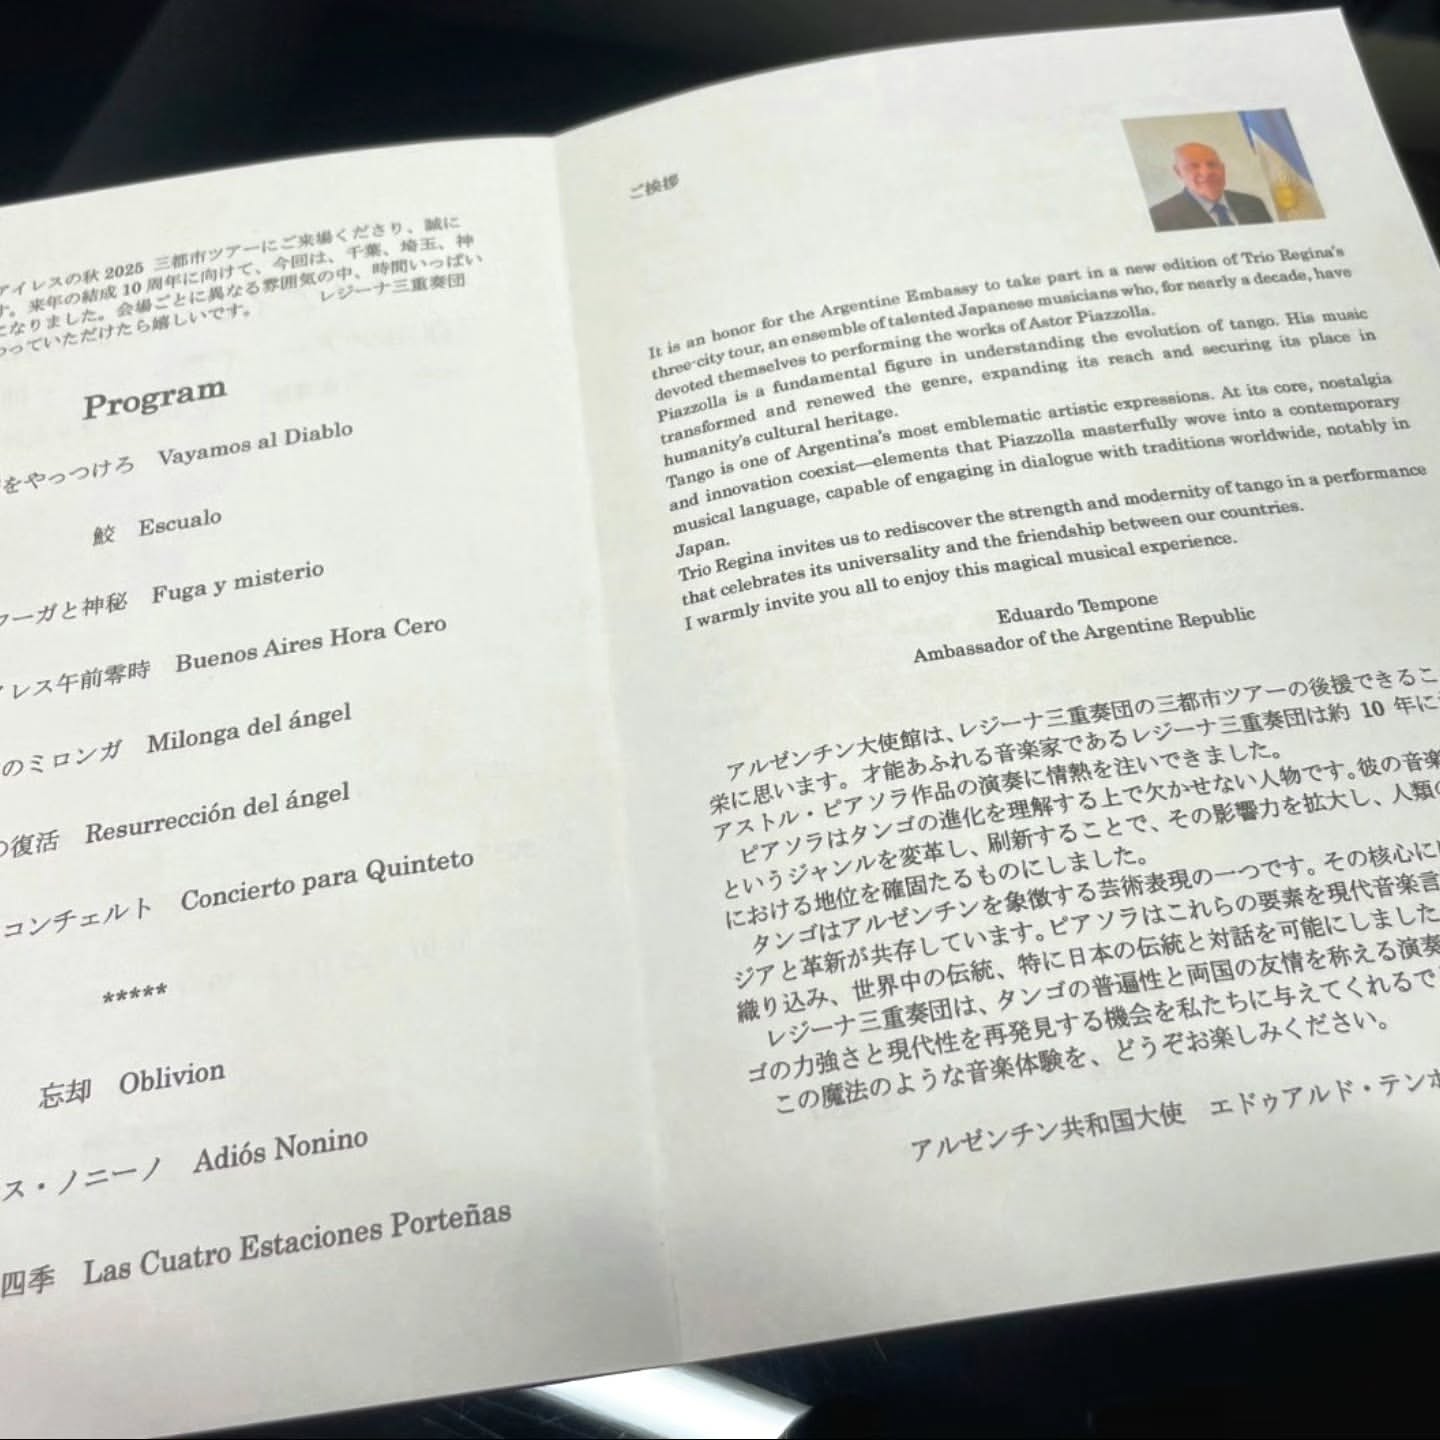 アイレスの秋 2025 三都市ツアーにご来場くださり、誠に
す。来年の結成 10 周年に向けて、今回は、千葉、埼玉、神
になりました。会場ごとに異なる雰囲気の中、時間いっぱい
わっていただけたら嬉しいです。
レジーナ三重奏団
Program
をやっつけろ Vayamos al Diablo
鮫 Escualo
フーガと神秘 Fuga y misterio
イレス午前零時 Buenos Aires Hora Cero
のミロンガ Milonga del ángel
の復活 Resurrección del ángel
コンチェルト Concierto para Quinteto
*****
忘却 Oblivion
ス・ノニーノ Adiós Nonino
四季 Las Cuatro Estaciones Porteñas
ご挨拶
It is an honor for the Argentine Embassy to take part in a new edition of Trio Regina's
three-city tour, an ensemble of talented Japanese musicians who, for nearly a decade, have
devoted themselves to performing the works of Astor Piazzolla.
Piazzolla is a fundamental figure in understanding the evolution of tango. His music
transformed and renewed the genre, expanding its reach and securing its place in
humanity's cultural heritage.
Tango is one of Argentina's most emblematic artistic expressions. At its core, nostalgia
and innovation coexist—elements that Piazzolla masterfully wove into a contemporary
musical language, capable of engaging in dialogue with traditions worldwide, notably in
Japan.
Trio Regina invites us to rediscover the strength and modernity of tango in a performance
that celebrates its universality and the friendship between our countries.
I warmly invite you all to enjoy this magical musical experience.
Eduardo Tempone
Ambassador of the Argentine Republic
アルゼンチン大使館は、レジーナ三重奏団の三都市ツアーの後援できるこ
栄に思います。才能あふれる音楽家であるレジーナ三重奏団は約 10 年に
アストル・ピアソラ作品の演奏に情熱を注いできました。
ピアソラはタンゴの進化を理解する上で欠かせない人物です。彼の音楽
というジャンルを変革し、刷新することで、その影響力を拡大し、人類の
における地位を確固たるものにしました。
タンゴはアルゼンチンを象徴する芸術表現の一つです。その核心に
ジアと革新が共存しています。ピアソラはこれらの要素を現代音楽言
織り込み、世界中の伝統、特に日本の伝統と対話を可能にしました
レジーナ三重奏団は、タンゴの普遍性と両国の友情を称える演奏
ゴの力強さと現代性を再発見する機会を私たちに与えてくれるで
この魔法のような音楽体験を、どうぞお楽しみください。
アルゼンチン共和国大使 エドゥアルド・テンポ